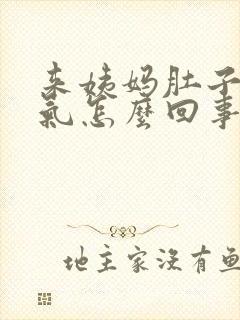 来姨妈肚子
氣怎麼回事
地主家沒有鱼